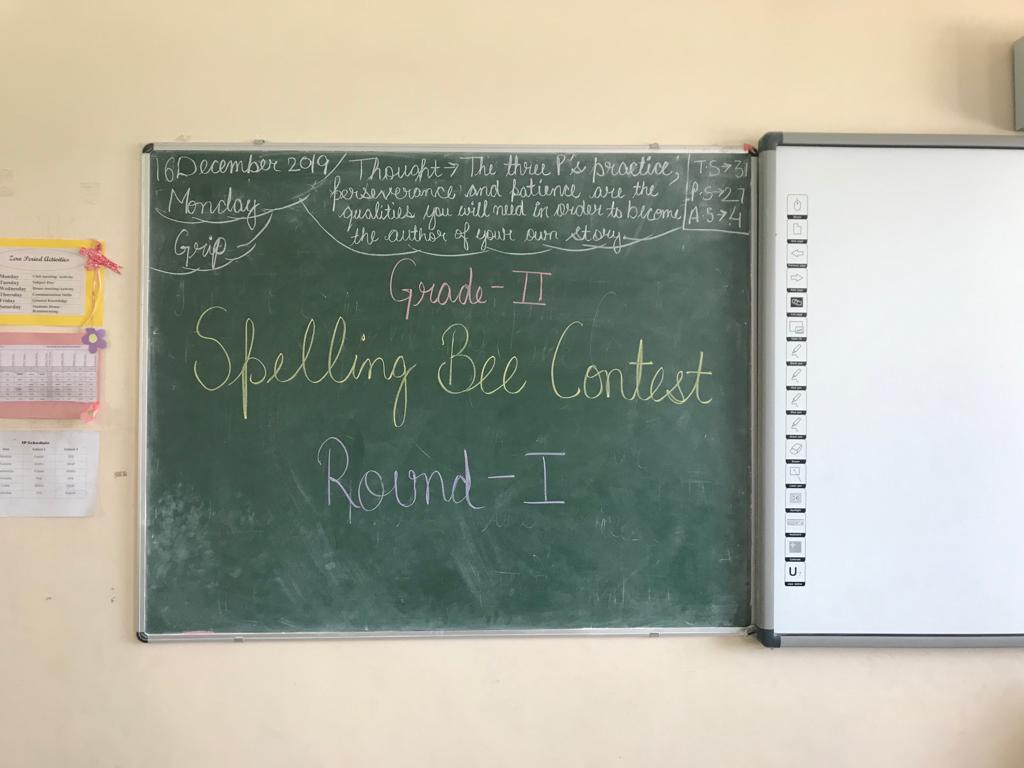 16 December 2019
Monday
Grip
Thought → The three P's practice,
perseverance and patience are the
qualities you will need in order to become
the author of your own story
T.S → 31
P.S → 27
A.S → 4
Grade - II
Spelling Bee Contest
Round - I
Zero Period Activities
Monday Club meeting/Activity
Tuesday Subject Fun
Wednesday House meeting/Activity
Thursday Communication Skills
Friday General Knowledge
Saturday
IP Schedule